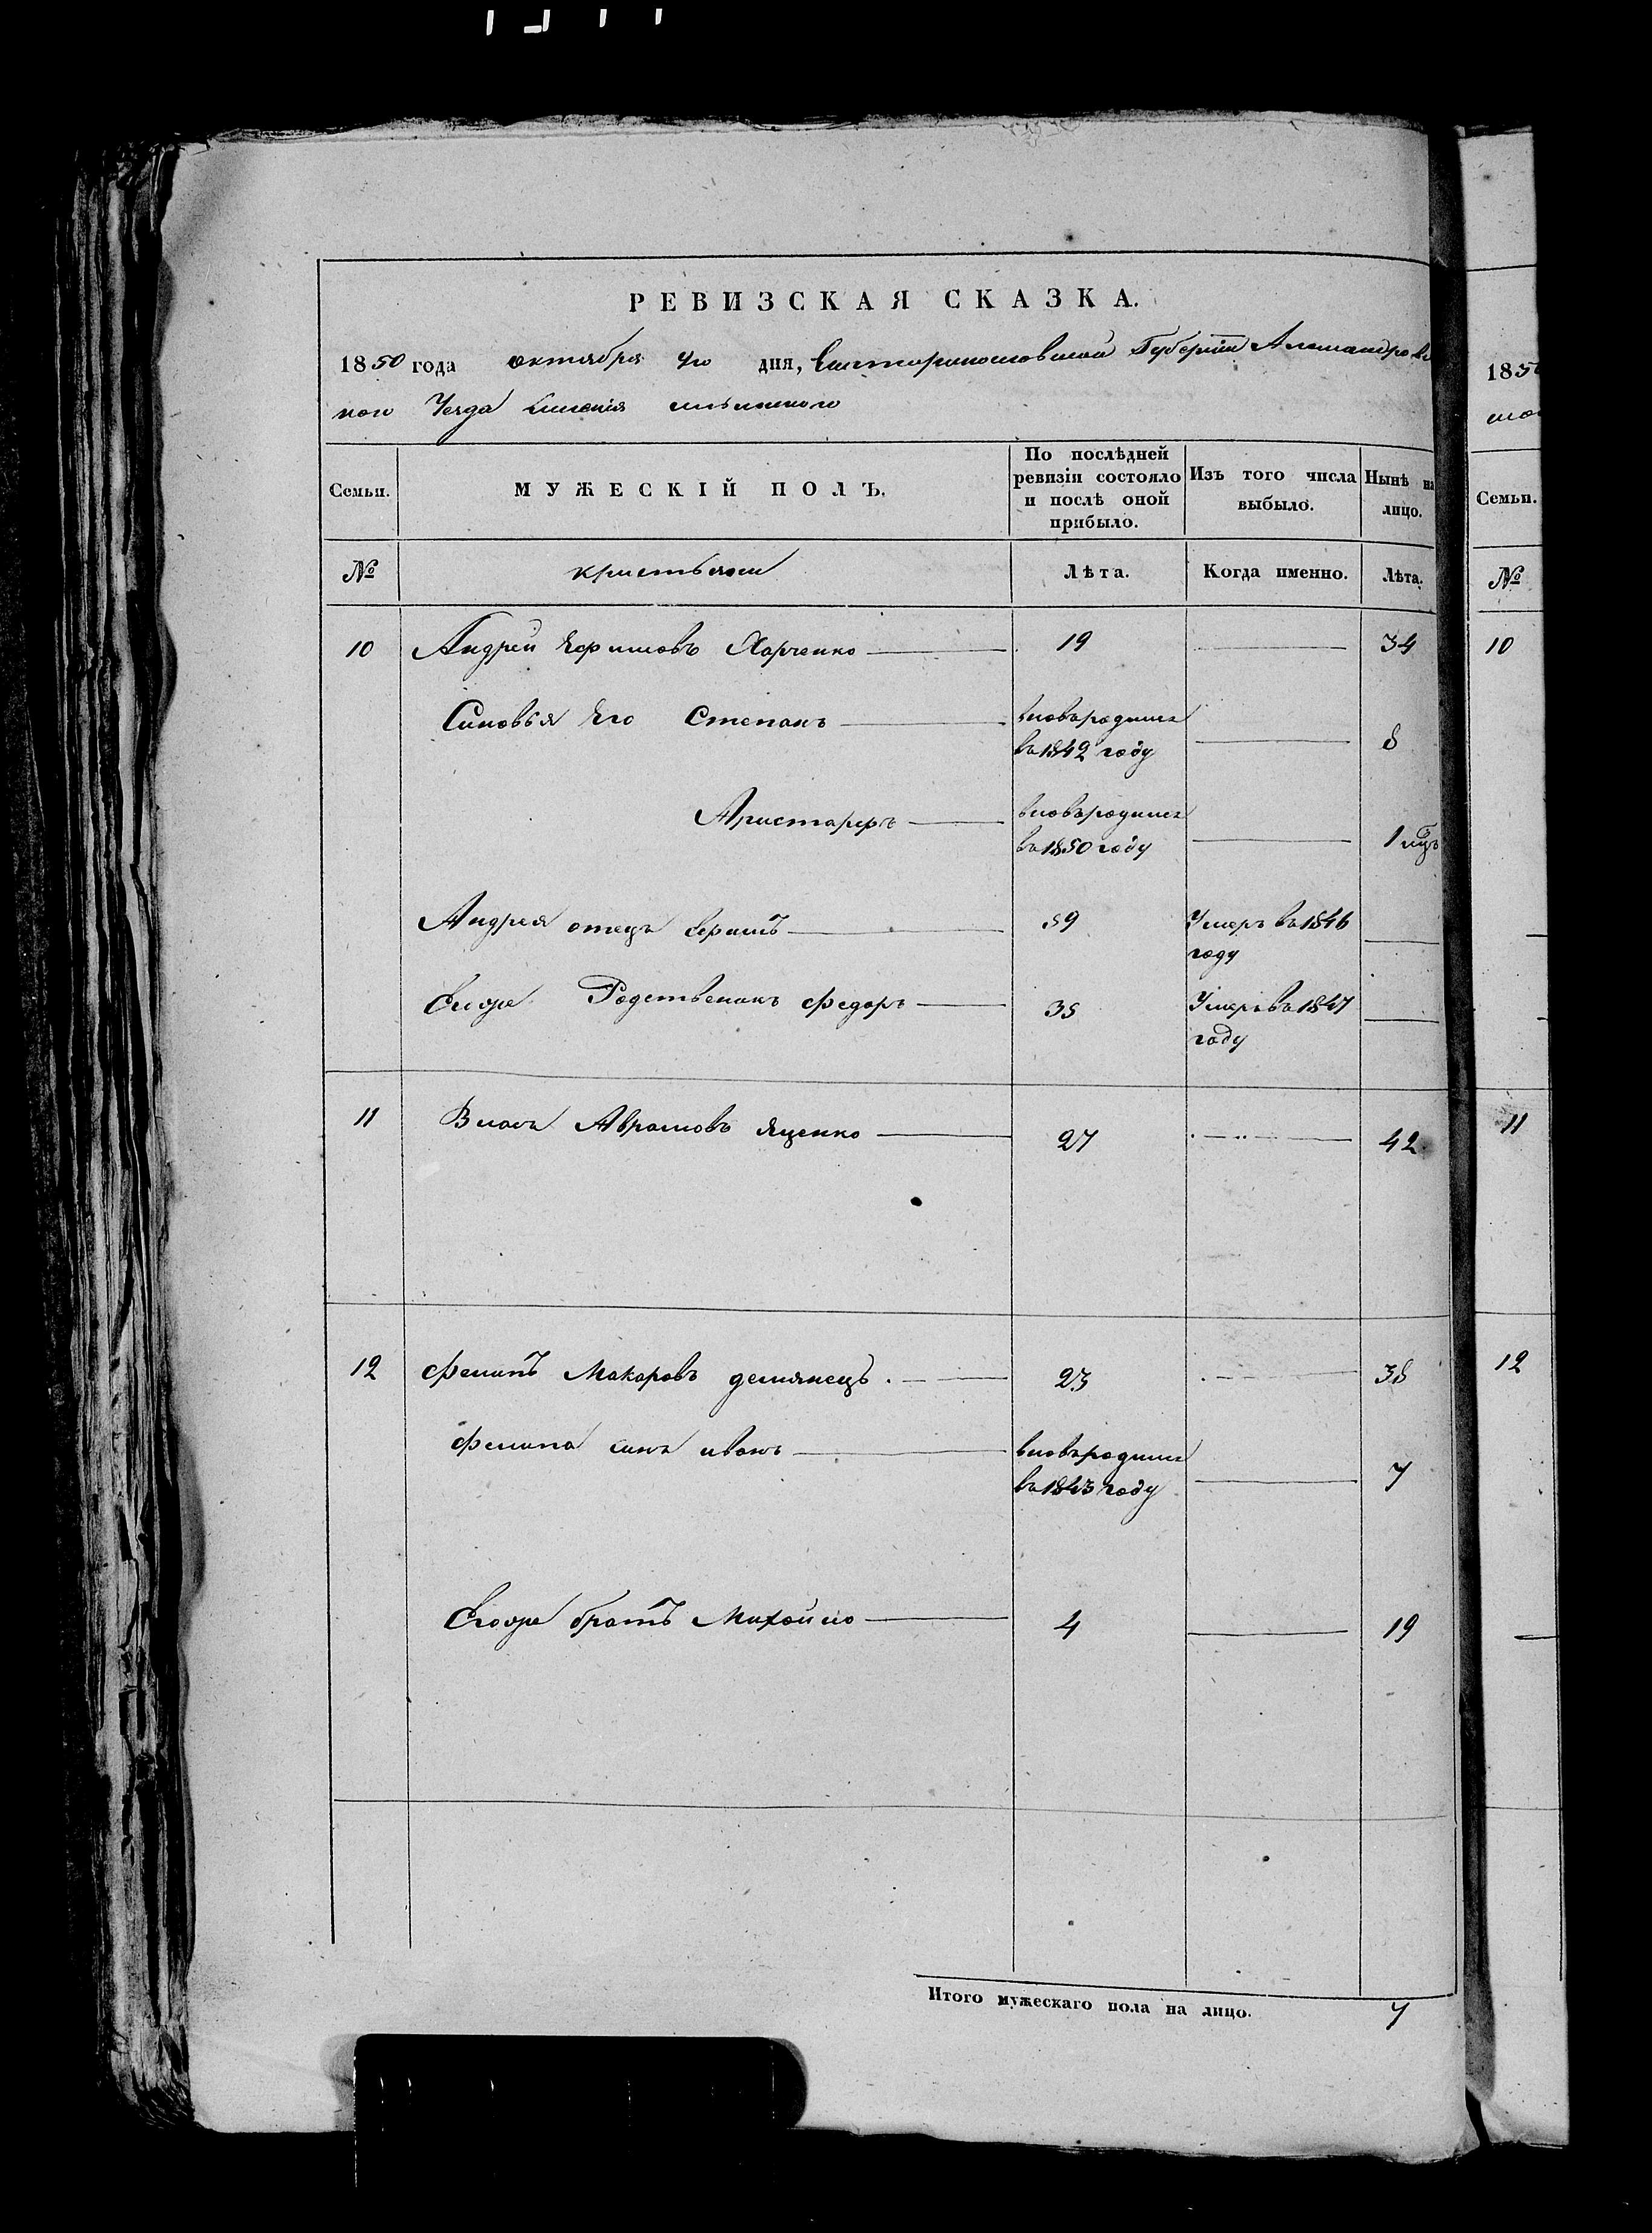 РЕВИЗСКАЯ СКАЗКА.
1850 года октября дня, Екатеринославской Губерніи Александровс
кого Уезда имения
Семьи.
МУЖЕСКІЙ ПОЛЪ.
По послѣдней ревизіи состояло и послѣ оной прибыло.
Изъ того числа выбыло.
Нынѣ на лицо.
№
кристьяни
Лѣта.
Когда именно.
Лѣта.
10 Андрей Яфимовъ Харченко 19 34
Синовья Его Степанъ вновьродился
въ 1842 году 8
Аристархъ вновьродился
въ 1850 году 1 мцъ
Андрея отецъ Ефимъ 59 Умеръ въ 1846
году
Емуже Родственикъ Федоръ 35 Умеръ въ 1847
году
11 Власъ Аврамовъ Яценко 27 42
12 Филипъ Макаровъ демянецъ 23 38
Филипа синъ иванъ вновьродился
въ 1843 году 7
Егоже братъ Михайло 4 19
Итого мужескаго пола на лицо. 7
185
Семьи.
№
10
11
12